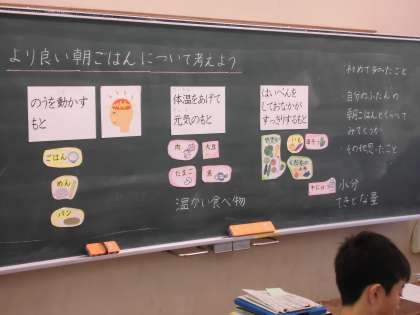 より良い朝ごはんについて考えよう
のうを動かす
もと
ごはん
めん
パン
体温をあげて
元気のもと
肉
大豆
たまご
魚
温かい食べ物
はいべんを
しておなかが
すっきりするもと
やさい
いも
くだもの
水分
てきとな量
初めて知ったこと
自分のふだんの
朝ごはんとくらべて
みてどうか
その他思ったこと